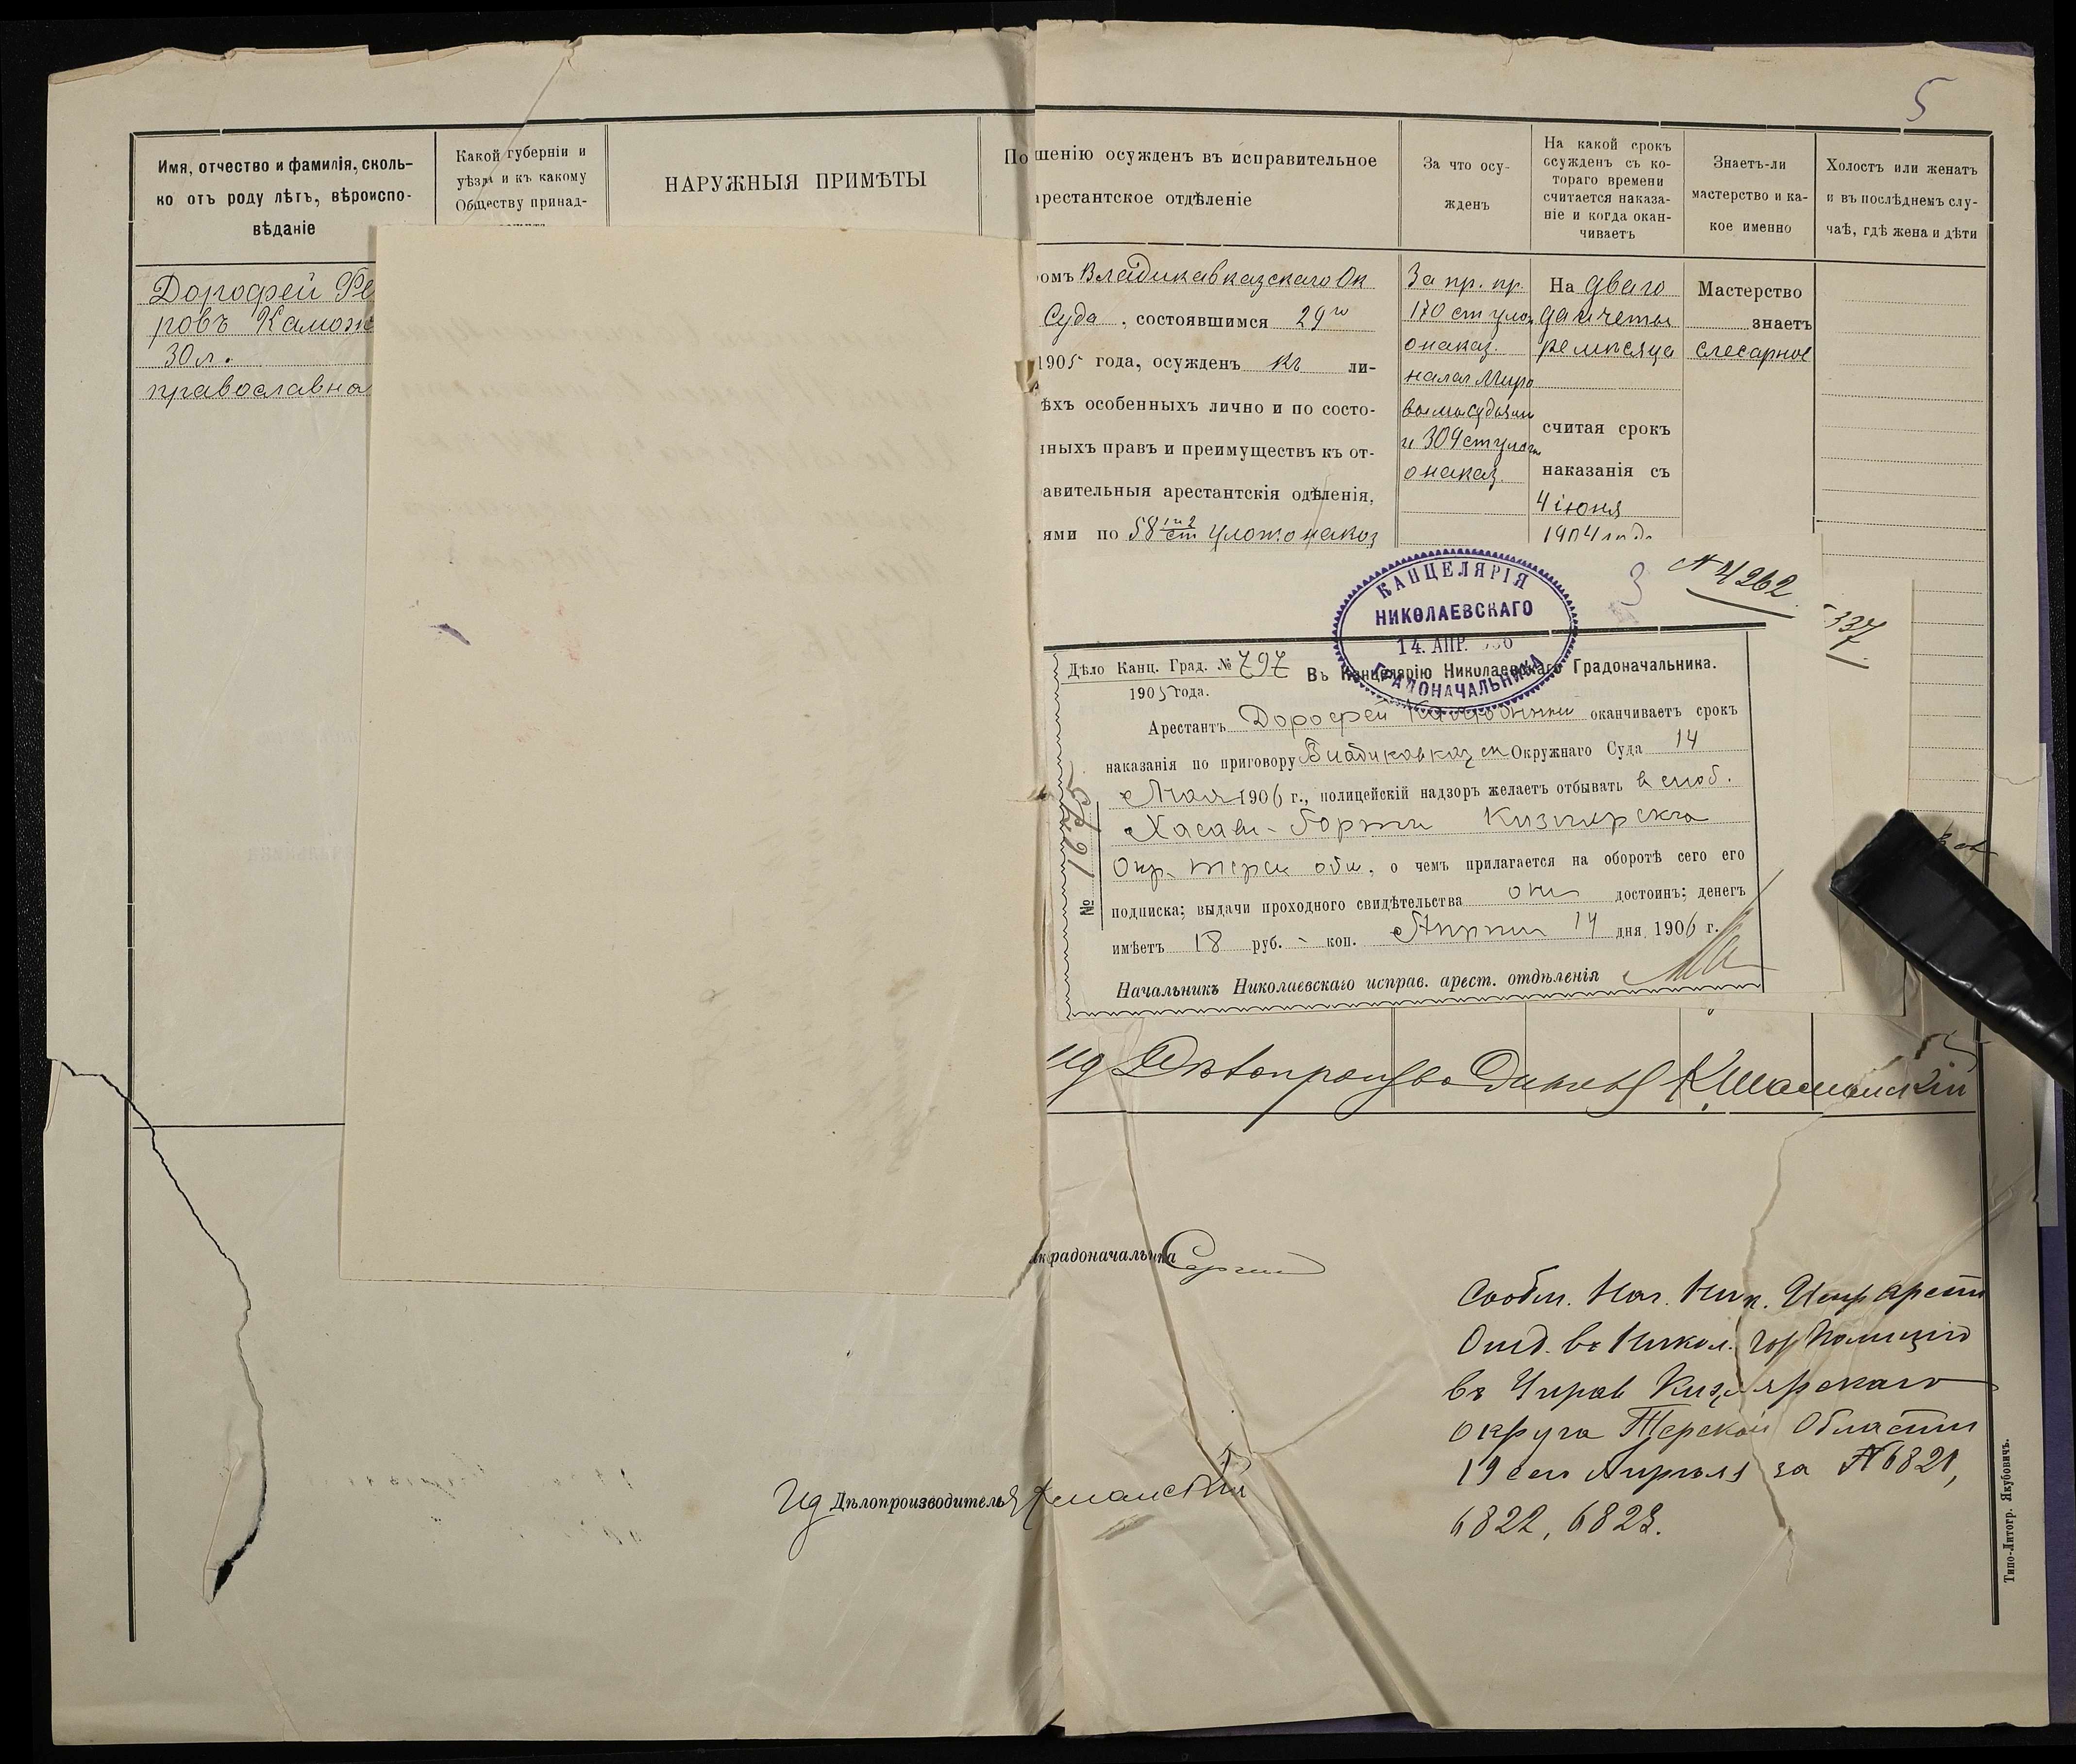 5
Имя, отчество и фамилія, сколь-
ко отъ роду лѣтъ, вѣроиспо-
вѣданіе
Какой губерніи и
уѣзда и къ какому
Обществу принад-
НАРУЖНЫЯ ПРИМѢТЫ
По
шенію осужденъ въ исправительное
арестантское отдѣленіе
За что осу-
жденъ
На какой срокъ
осужденъ съ ко-
тораго времени
считается наказа-
ніе и когда окан-
чиваетъ
Знаетъ-ли
мастерство и ка-
кое именно
Холостъ или женатъ
и въ послѣднемъ слу-
чаѣ, гдѣ жена и дѣти
Дорофей Фе
ровъ Камож
30 л.
православна
ромъ Владикавказскаго Ок
Суда, состоявшимся 29го
1905 года, осужденъ къ ли-
ѣхъ особенныхъ лично и по состо-
нныхъ правъ и преимуществъ къ от-
авительныя арестантскія одѣленія,
ями по 58 1 и 2 ст улож о наказ
За пр. пр.
170 ст улож
о наказ.
налаг Миро
выми Судьями
и 304 ст улож
о наказ.
На два го
да и четы
ре мѣсяца
считая срокъ
наказанія съ
4 іюня
1904 года
Мастерство
знаетъ
слесарное
КАНЦЕЛЯРІЯ
НИКОЛАЕВСКАГО
14. АПР.
ГРАДОНАЧАЛЬНИКА
3
№ 4262
337
Дѣло Канц. Град. № 797
1905 года.
Въ Канцелярію Николаевскаго Градоначальника.
Арестантъ Дорофей оканчиваетъ срокъ
наказанія по приговору Владикавказск Окружнаго Суда 14
Мая 1906 г., полицейскій надзоръ желаетъ отбывать в слоб.
Хасавъ-Юртъ Кизлярскаго
Окр. Терск обл., о чемъ прилагается на оборотѣ сего его
подписка; выдачи проходного свидѣтельства онъ достоинъ; денегъ
имѣетъ 18 руб. - коп. Апрѣля 14 дня 1906 г.
Начальникъ Николаевскаго исправ. арест. отдѣленія
№
Ид Дѣлопроизводителя К.
радоначальника
Ид Дѣлопроизводителя
Сообщ. Нач. Ник. Испр арест
Отд. въ Никол. гор Полицію
въ Управ Кизлярскаго
округа Терской Области
19 сего Апрѣля за № 6821,
6822, 6823.
Типо-Литогр. Якубовичъ.